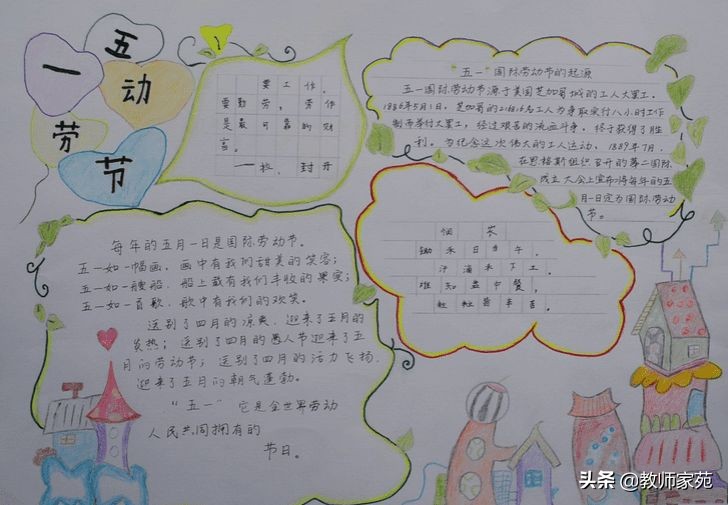 五
一
动
劳
节
要工作,
要勤劳,劳作
是最可靠的财
富。
——拉·封丹
“五一”国际劳动节的起源
五一国际劳动节源于美国芝加哥城的工人大罢工。
1886年5月1日,芝加哥的21.6万名工人为争取实行八小时工作
制而举行大罢工,经过艰苦的流血斗争,终于获得了胜
利。为纪念这次伟大的工人运动,1889年7月,
在恩格斯组织召开的第二国际
成立大会上宣布将每年的五
月一日定为国际劳动
节。
每年的五月一日是国际劳动节。
五一如一幅画,画中有我们甜美的笑容;
五一如一艘船,船上载有我们丰收的果实;
五一如一首歌,歌中有我们的欢笑。
送别了四月的凉爽,迎来了五月的
炎热;送别了四月的愚人节迎来了五
月的劳动节;送别了四月的活力飞扬,
迎来了五月的朝气蓬勃。
“五一”它是全世界劳动
人民共同拥有的
节日。
悯农
锄禾日当午,
汗滴禾下土。
谁知盘中餐,
粒粒皆辛苦。
头条 @教师家苑